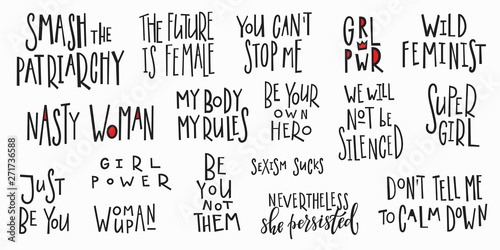 SMASH THE
PATRIARCHY
THE FUTURE
IS FEMALE
YOU CAN'T
STOP ME
GRL
PWR
WILD
FEMINIST
NASTY WOMAN
MY BODY
MY RULES
BE YOUR
OWN
HERO
WE WILL
NOT BE
SILENCED
SUPER
GIRL
JUST
BE YOU
GIRL
POWER
WOMAN
UP
BE
YOU
NOT
THEM
SEXISM SUCKS
NEVERTHELESS
she persisted
DON'T TELL ME
TO CALM DOWN
Adobe Stock | #271736588